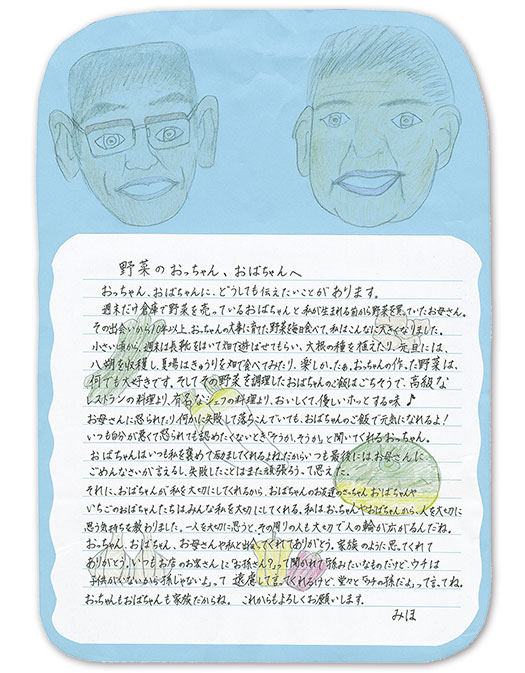 野菜のおっちゃん、おばちゃんへ
おっちゃん、おばちゃんに、どうしても伝えたいことがあります。
週末だけ倉庫で野菜を売っているおばちゃんと私が生まれる前から野菜を買っていたお母さん。
その出会いから10年以上、おっちゃんの大事に育てた野菜を毎日食べて、私はこんなに大きくなりました。
小さい頃から、週末は長靴をはいて畑で遊ばせてもらい、大根の種を植えたり、元旦には
八朔を収穫し、夏場はきゅうりを畑で食べてみたり、楽しかったぁ。おっちゃんの作った野菜は、
何でも大好きです。そしてその野菜を調理したおばちゃんのご飯はごちそうで、高級な
レストランの料理より、有名なシェフの料理より、おいしくて、優しいホッとする味♪
お母さんに怒られたり、何かに失敗して落ちこんでいても、おばちゃんのご飯で元気になれるよ！
いつも自分が悪くて怒られても認めたくないとき「そうか、そうか。」と聞いてくれるおっちゃん。
おばちゃんはいつも私を褒めて励ましてくれるよね。だからいつも最後にはお母さんに
ごめんなさいが言えるし、失敗したことはまた頑張ろう、って思えた。
それに、おばちゃんが私を大切にしてくれるから、おばちゃんのお友達のさっちゃんおばちゃんや
いちごのおばちゃんたちはみんな私を大切にしてくれる。私はおっちゃんやおばちゃんから、人を大切に
思う気持ちを教わりました。一人を大切に思うと、その周りの人も大切で人の輪が広がるんだね。
おっちゃん、おばちゃん、お母さんや私と出会ってくれてありがとう。家族のように思ってくれて
ありがとう。いつもお店のお客さんに「お孫さん？」って聞かれて「孫みたいなものだけど、ウチは
子供がいないから孫じゃないよ。」って遠慮して言ってくれるけど、堂々と「ウチの孫だよ。」って言ってね。
おっちゃんもおばちゃんも家族だからね。これからもよろしくお願いします。
みほ